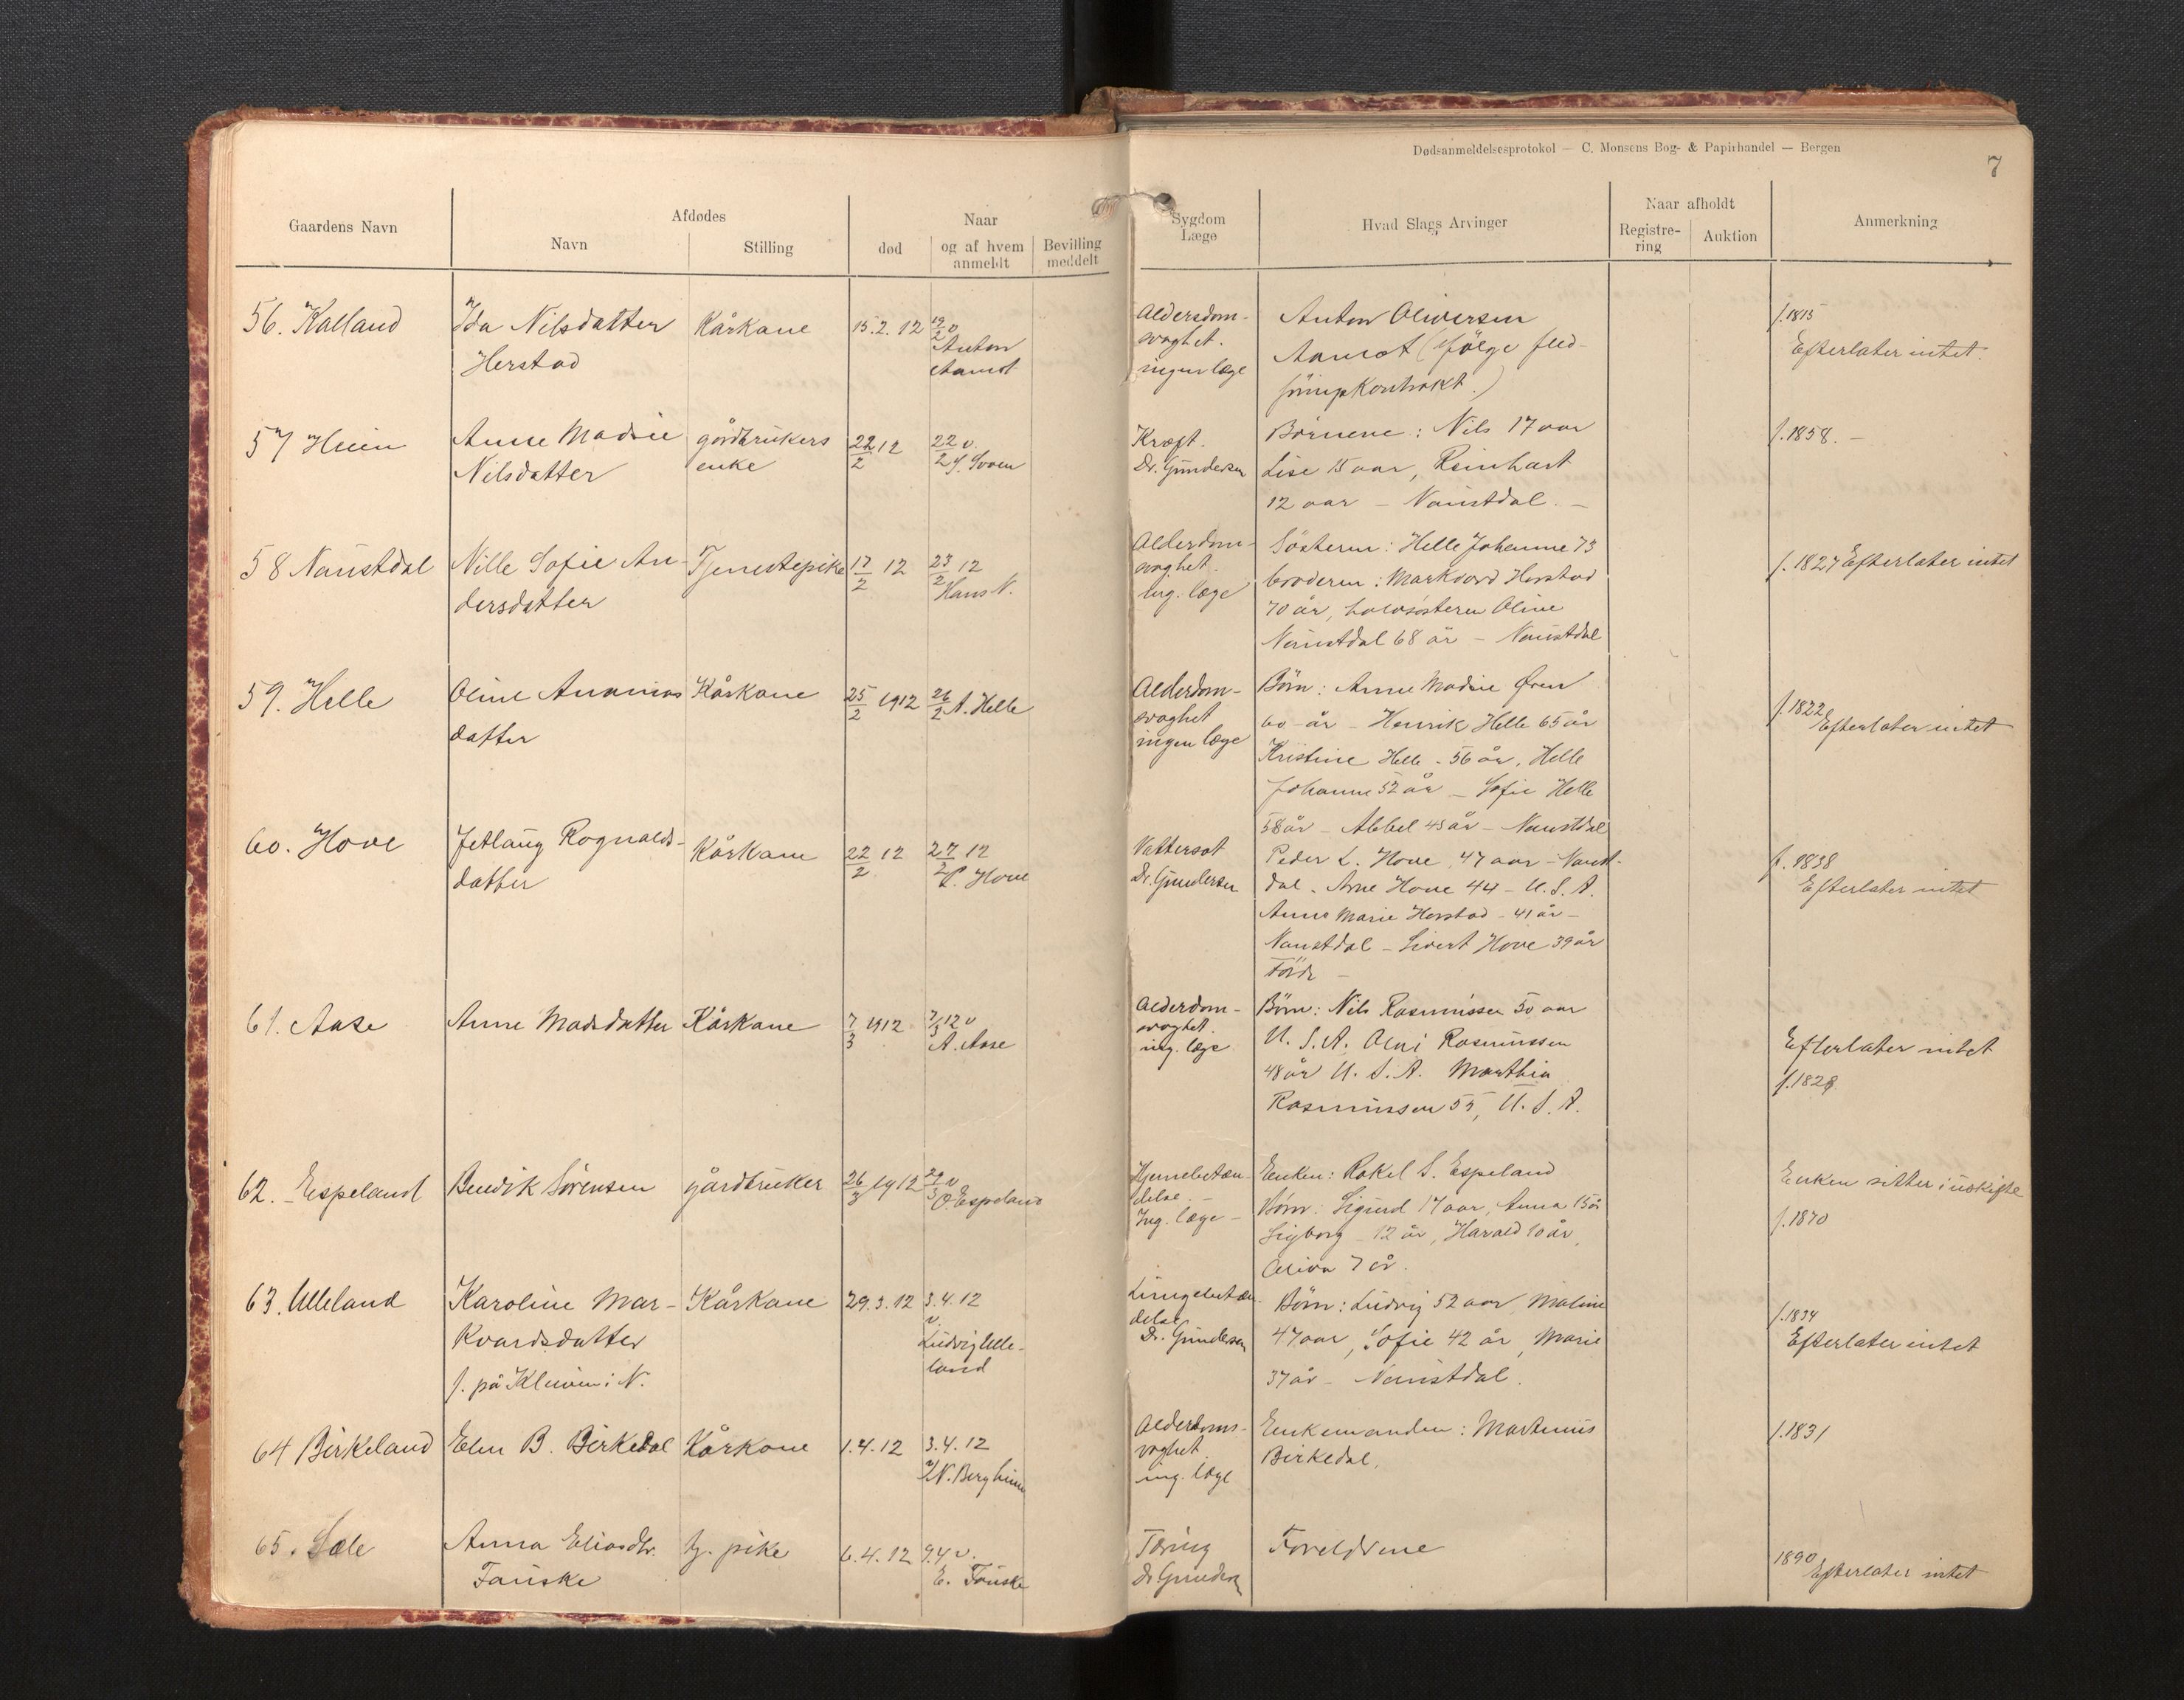 Dødsanmeldelsesprotokol — C. Monsens Bog- & Papirhandel — Bergen
7
Gaardens Navn
Afdødes
Navn
Stilling
Naar
død
og af hvem anmeldt
Bevilling meddelt
Sygdom Læge
Hvad Slags Arvinger
Naar afholdt
Registre-ring
Auktion
Anmerkning
56. Kalland
Ida Nilsdatter
Herstad
Kårkone
15.2.12
19/2 v
Anton
Aamot
Aldersdom-
svaghet.
ingen læge
Anton Oliversen
Aamot (ifölge fled-
föringskontrakt.)
f. 1815
Efterlater intet.
57 Heien
Anne Madsie
Nilsdatter
gårdbrukers
enke
22/2 12
22/2 v.
Kræft.
Dr. Gundersen
Börnene: Nils 17 aar
Lise 15 aar, Reinhart
12 aar – Naustdal. –
f. 1858. –
58 Naustdal
Nille Sofie An-
dersdatter
Tjenestepike
17/2 12
23/2 12
Hans N.
Alderdom-
svaghet.
Ing. læge
Sösteren: Helle Johanne 73
broderen: Markvard Herstad
70 år, halvsösteren Oline
Naustdal 68 år – Naustdal
f. 1827 Efterlater intet
59. Helle
Oline Ananias
datter
Kårkone
25/2 1912
26/2 A. Helle
Alderdom-
svaghet
ingen læge
Börn: Anne Madsie Øren
60 år – Henrik Helle 65 år
Kristine Helle - 56 år, Helle
Johanne 52 år – Sofie Helle
58 år – Abbel 45 år – Naustdal
f. 1822
Efterlater intet
60. Hove
Jetlaug Rognalds-
datter
Kårkone
22/2 12
27/2 12
P. Hove
Vattersot
Dr. Gundersen
Peder L. Hove, 47 aar – Naust-
dal. Arne Hove 44 – U.S.A.
Anna Marie Herstad – 41 år –
Naustdal – Sivert Hove 39 år
Förde –
f. 1838
Efterlater intet
61. Aase
Anne Madsdatter
Kårkone
7/3 1912
7/3 12 v
A. Aase
Alderdom-
svaghet.
ing. læge
Börn: Nils Rasmussen 50 aar
U.S.A. Oeni Rasmussen
48 år U.S.A. Marthin
Rasmussen 55, U.S.A.
Efterlater intet
f. 1828
62. Espeland
Bendik Sörensen
gårdbruker
26/3 1912
29/3 v
O. Espeland
Hjernebetæn-
delse. –
Ing. læge –
Enken: Rakel S. Espeland
Börn: Sigurd 17 aar, Anna 15 år
Sigborg – 12 år, Harald 10 år,
Oliva 7 år.
Enken sitter i uskifte
f. 1870
63. Ulleland
Karoline Mar-
kvardsdatter
f. på Kleiven i N.
Kårkone
29.3.12
3.4.12
v.
Ludvig Ulle-
land
Lungebetæn-
delse
Dr. Gundersen
Börn: Ludvig 52 aar, Maline
47 aar, Sofie 42 år, Marie
37 år – Naustdal.
f. 1834
Efterlater intet
64 Birkeland
Elen B. Birkedal
Kårkone
1.4.12
3.4.12
v/N. Bergheim
Alderdoms-
svaghet.
ing. læge
Enkemanden: Martinus
Birkedal.
f. 1831
65. Sæle
Anna Eliasdtr.
Fauske
tj. pike
6.4.12
9.4 v.
E. Fauske
Tæring
Dr Gundersen
Foreldrene
1890
Efterlater intet